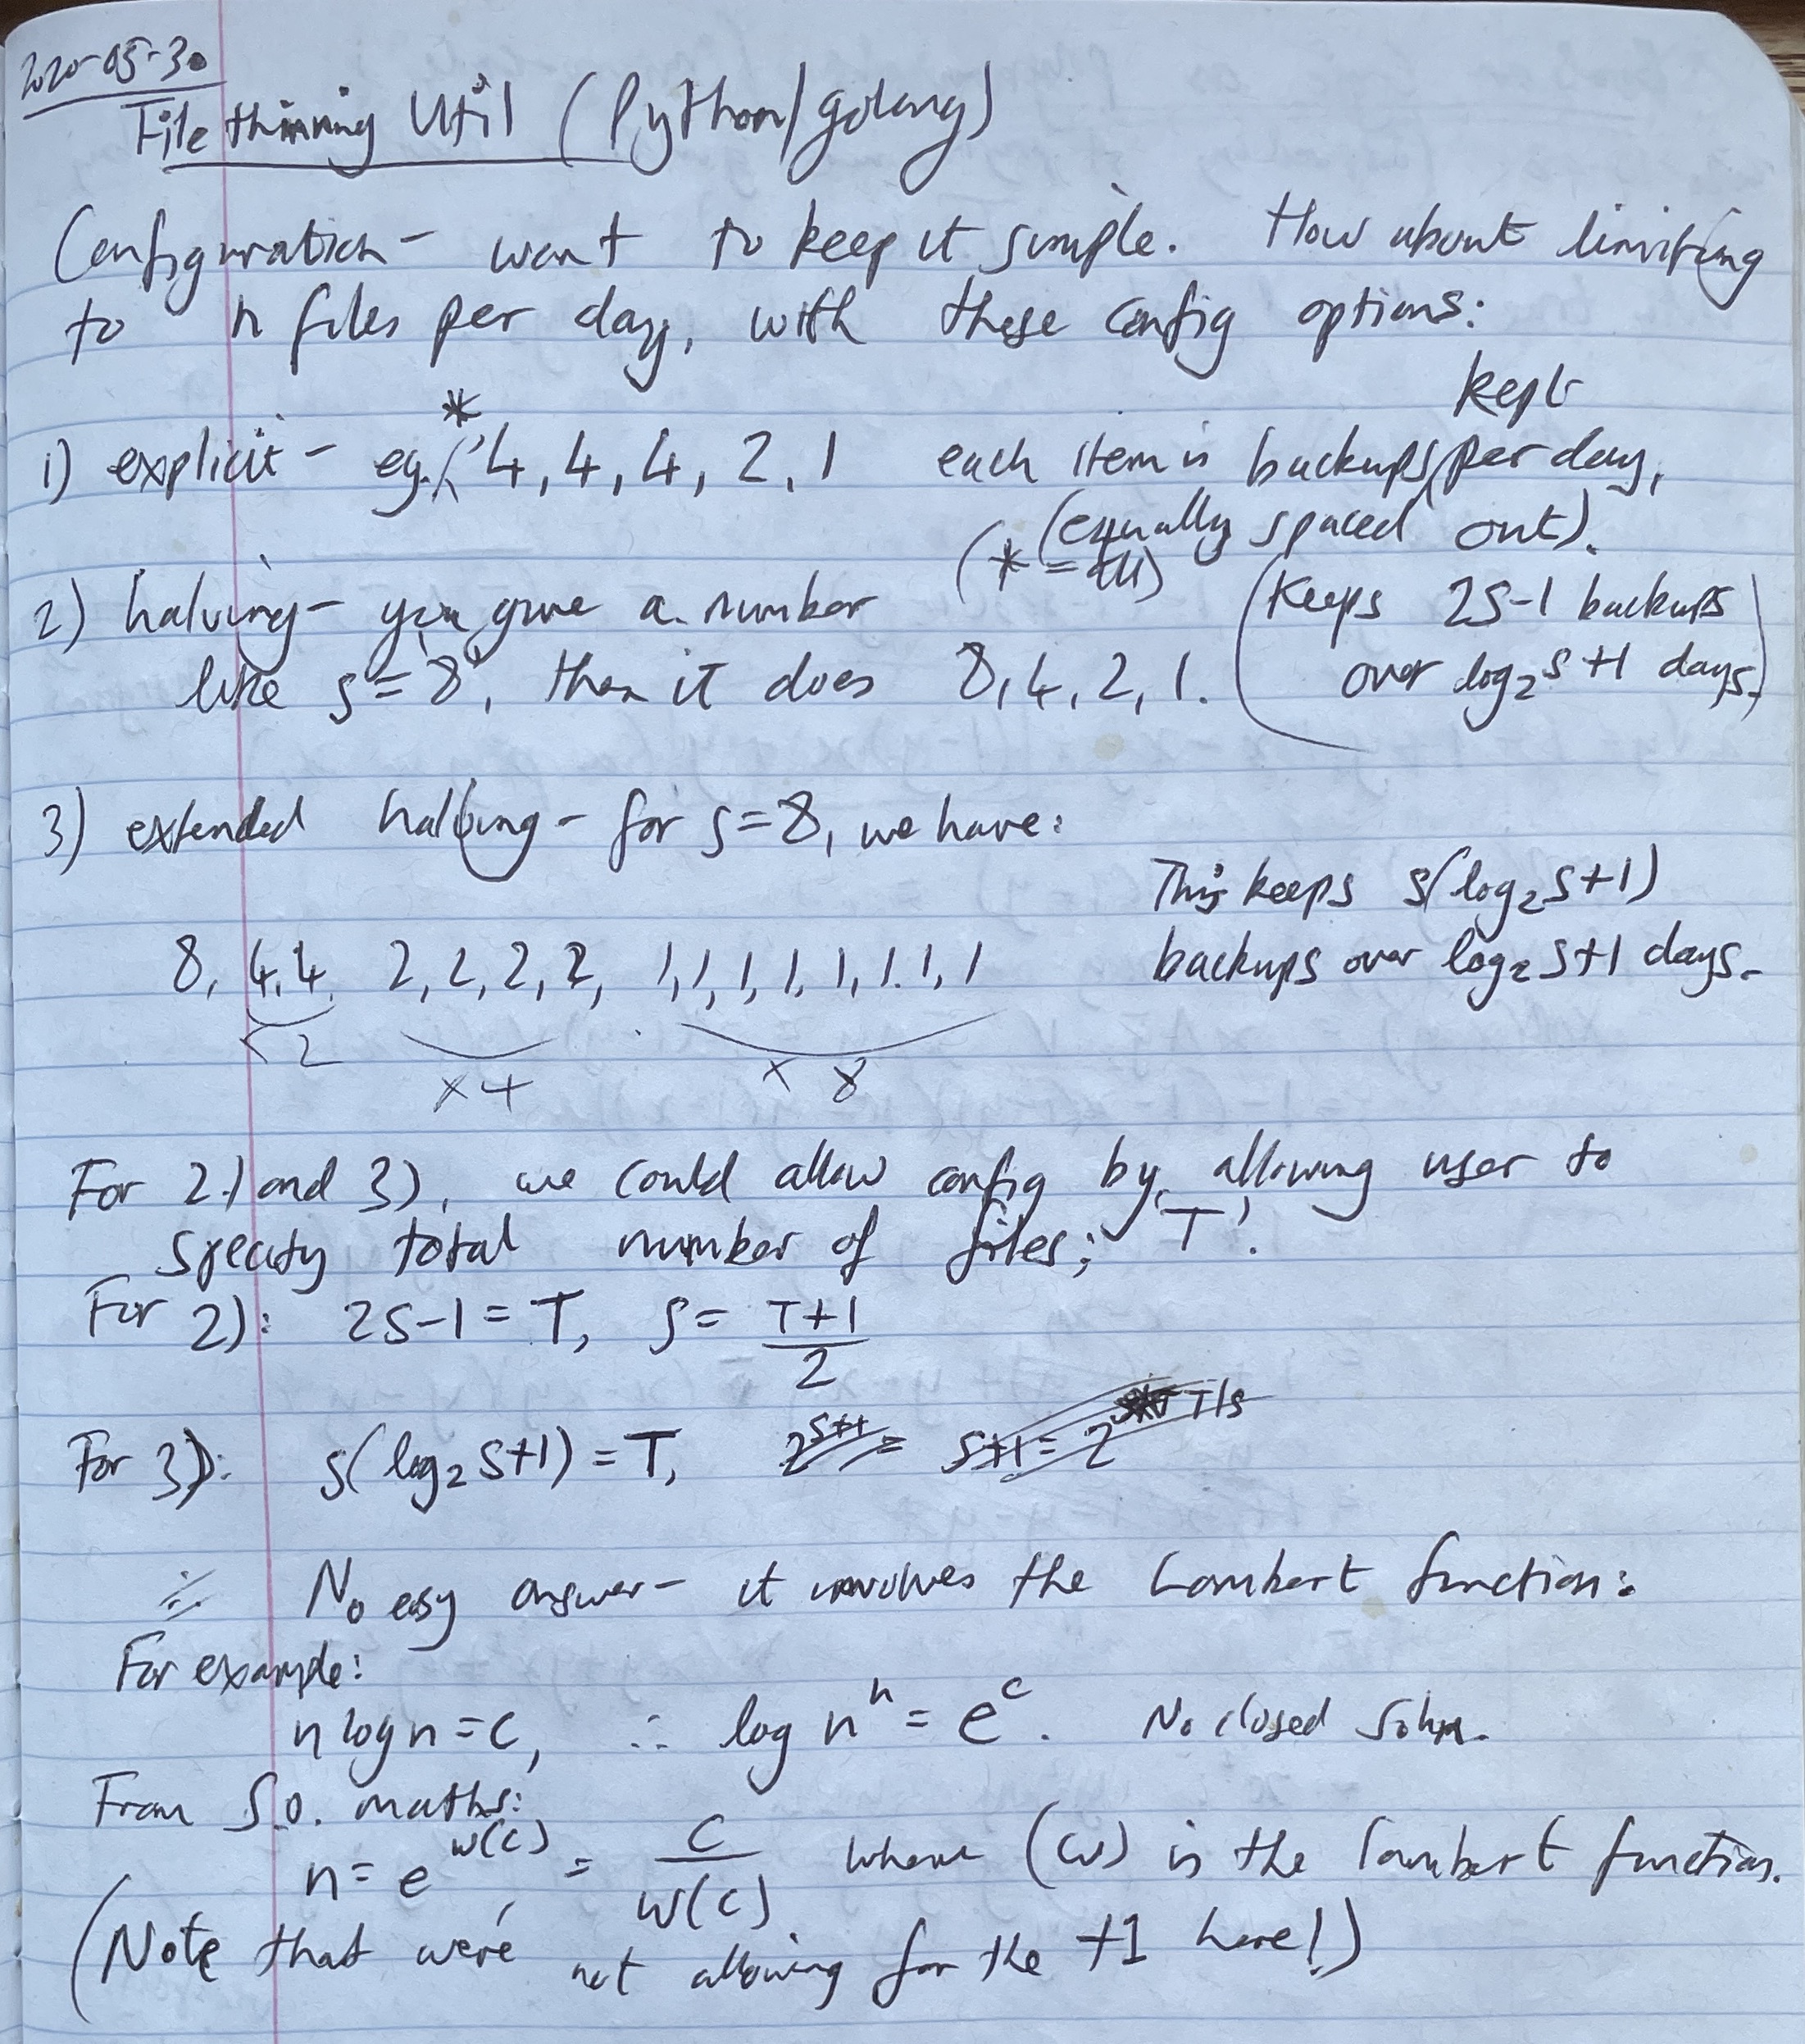 2020-05-30
File thinning Util (Python/golang)
Configuration - want to keep it simple. How about limiting
to n files per day, with these config options:
kept
*
1) explicit - eg. 4, 4, 4, 2, 1 each item is backups per day,
(equally spaced out).
(* = all)
2) halving - you give a number
like s=8, then it does 8, 4, 2, 1.
(Keeps 2s-1 backups
over log₂s+1 days.)
3) extended halving - for s=8, we have:
This keeps s(log₂s+1)
8, 4,4, 2,2,2,2, 1,1,1,1,1,1,1,1 backups over log₂s+1 days.
×2
×4
×8
For 2) and 3), we could allow config by allowing user to
specify total number of files; T!
For 2): 2s-1=T, s= (T+1)/2
For 3): s(log₂s+1)=T, 2^(s+1)= s+1=2^(T/s)
No easy answer - it involves the Lambert function:
For example:
n log n = c, ∴ log nⁿ = e^c. No closed soln.
From S.O. maths:
n= e^(w(c)) = c/w(c) where (w) is the Lambert function.
(Note that we're not allowing for the +1 here!)